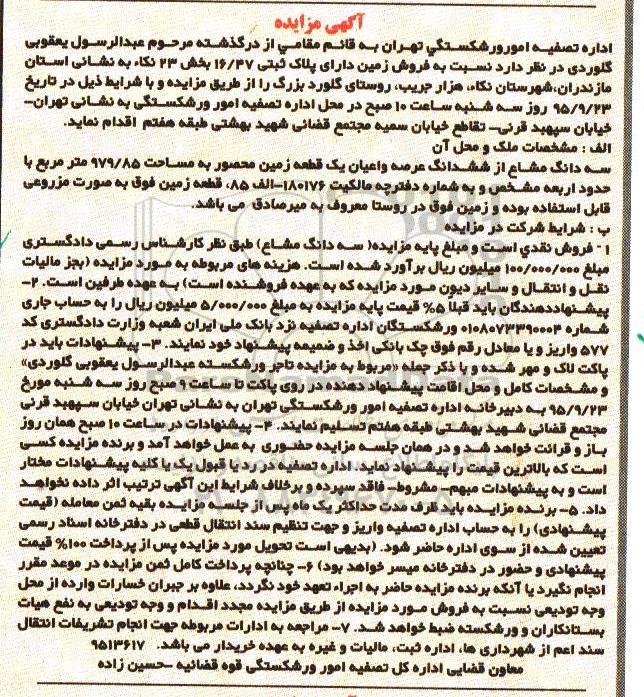 آگهی مزایده
اداره تصفیه امورورشکستگي تهران به قائم مقامي از درگذشته مرحوم عبدالرسول یعقوبی
گلوردی در نظر دارد نسبت به فروش زمین دارای پلاک ثبتی ۱۶/۴۷ بخش ۲۳ نکاء به نشانی استان
مازندران،شهرستان نکاء، هزار جریب، روستای گلورد بزرگ را از طریق مزایده و با شرایط ذیل در تاریخ
۹۵/۹/۲۳ روز سه شنبه ساعت ۱۰ صبح در محل اداره تصفیه امور ورشکستگی به نشانی تهران-
خیابان سپهبد قرنی- تقاطع خیابان سمیه مجتمع قضائی شهید بهشتی طبقه هفتم اقدام نماید.
الف : مشخصات ملک و محل آن
سه دانگ مشاع از ششدانگ عرصه واعیان یک قطعه زمین محصور به مساحت ۹۷۹/۸۵ متر مربع با
حدود اربعه مشخص و به شماره دفترچه مالکیت ۱۸۰۱۷۶-الف ۸۵، قطعه زمین فوق به صورت مزروعی
قابل استفاده بوده و زمین فوق در روستا معروف به میرصادق می باشد.
ب : شرایط شرکت در مزایده
۱- فروش نقدي است و مبلغ پایه مزایده( سه دانگ مشاع) طبق نظر کارشناس رسمی دادگستری
مبلغ ۱۰۰/۰۰۰/۰۰۰ میلیون ریال برآورد شده است. هزینه های مربوطه به مورد مزایده (بجز مالیات
نقل و انتقال و سایر دیون مورد مزایده که به عهده فروشنده است) به عهده طرفین است. ۲-
پیشنهاددهندگان باید قبلاً ۵% قیمت پایه مزایده به مبلغ ۵/۰۰۰/۰۰۰ میلیون ریال را به حساب جاری
شماره ۰۱۰۸۰۷۳۳۹۰۰۰۴ ورشکستگان اداره تصفیه نزد بانک ملی ایران شعبه وزارت دادگستری کد
۵۷۷ واریز و یا معادل رقم فوق چک بانکی اخذ و ضمیمه پیشنهاد خود نمایند. ۳- پیشنهادات باید در
پاکت لاک و مهر شده و با ذکر جمله «مربوط به مزایده تاجر ورشکسته عبدالرسول یعقوبی گلوردی»
و مشخصات کامل و محل اقامت پیشنهاد دهنده در روی پاکت تا ساعت ۹ صبح روز سه شنبه مورخ
۹۵/۹/۲۳ به دبیرخانه اداره تصفیه امور ورشکستگی تهران به نشانی تهران خیابان سپهبد قرنی
مجتمع قضائی شهید بهشتی طبقه هفتم تسلیم نمایند. ۴- پیشنهادات در ساعت ۱۰ صبح همان روز
باز و قرائت خواهد شد و در همان جلسه مزایده حضوری به عمل خواهد آمد و برنده مزایده کسی
است که بالاترین قیمت را پیشنهاد نماید. اداره تصفیه در رد یا قبول یک یا کلیه پیشنهادات مختار
است و به پیشنهادات مبهم- مشروط- فاقد سپرده و برخلاف شرایط این آگهی ترتیب اثر داده نخواهد
داد. ۵- برنده مزایده باید ظرف مدت حداکثر یک ماه پس از جلسه مزایده بقیه ثمن معامله (قیمت
پیشنهادی) را به حساب اداره تصفیه واریز و جهت تنظیم سند انتقال قطعی در دفترخانه اسناد رسمی
تعیین شده از سوی اداره حاضر شود. (بدیهی است تحویل مورد مزایده پس از پرداخت ۱۰۰% قیمت
پیشنهادی و حضور در دفترخانه میسر خواهد بود) ۶- چنانچه پرداخت کامل ثمن مزایده در موعد مقرر
انجام نگیرد یا آنکه برنده مزایده حاضر به اجراء تعهد خود نگردد، علاوه بر جبران خسارات وارده از محل
وجه تودیعی نسبت به فروش مورد مزایده از طریق مزایده مجدد اقدام و وجه تودیعی به نفع هیات
بستانکاران و ورشکسته ضبط خواهد شد. ۷- مراجعه به ادارات مربوطه جهت انجام تشریفات انتقال
سند اعم از شهرداری ها، اداره ثبت، مالیات و غیره به عهده خریدار می باشد. ۹۵۱۳۶۱۷
معاون قضایی اداره کل تصفیه امور ورشکستگی قوه قضائیه -حسین زاده